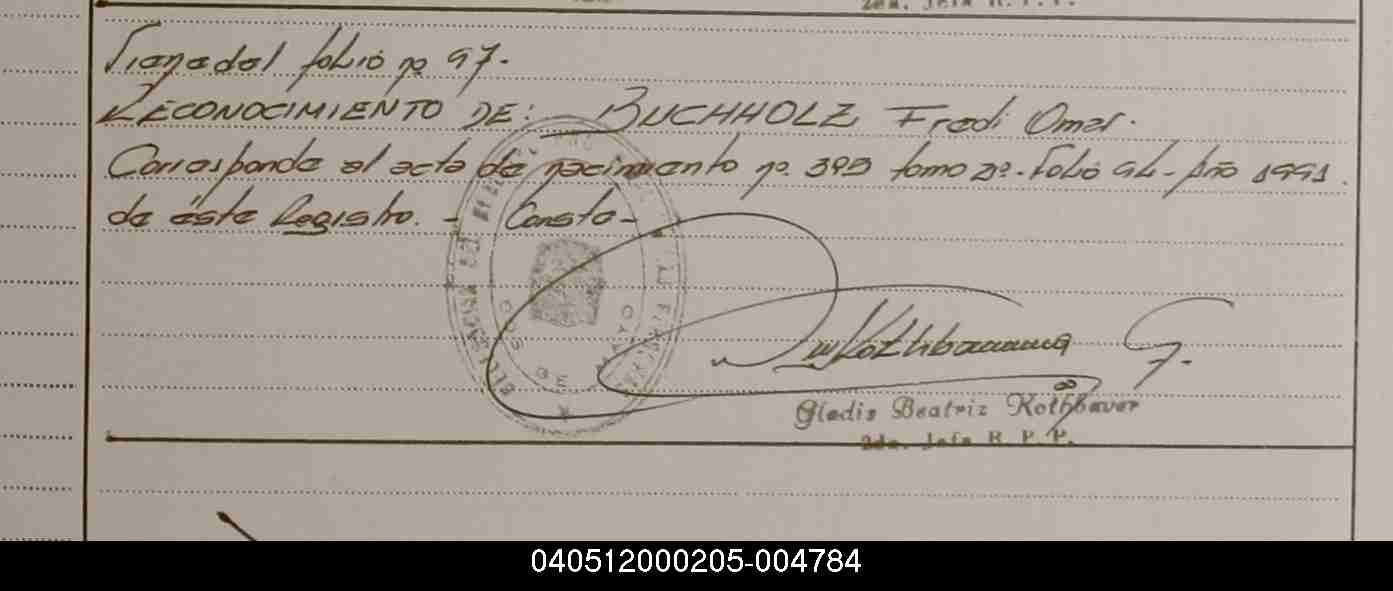 2da. Jefa R. P. P.
Viene del folio nº 97.
RECONOCIMIENTO DE: BUCHHOLZ Fredi Omar.
Corresponde al acta de nacimiento nº. 393 tomo 2º. Folio 94 - Año 1991.
de éste Registro. - Consta -
DOS DE MAYO
Kothbauer G.
Gladis Beatriz Kothbauer
2da. Jefa R. P. P.
040512000205-004784